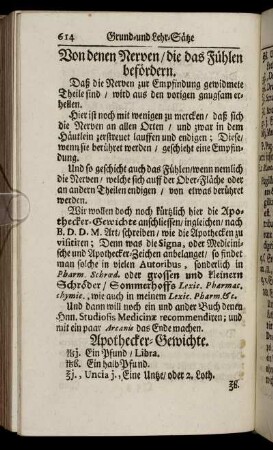 614 Grund-und Lehr-Sätze
Von denen Nerven / die das Fühlen
befördern.
Daß die Nerven zur Empfindung gewidmete
Theile sind / wird aus den vorigen gnugsam er-
hellen.
Hier ist noch mit wenigen zu mercken / daß sich
die Nerven an allen Orten / und zwar in dem
Häutlein zerstreuet lauffen und endigen; Diese/
wenn sie berühret werden / geschieht eine Empfin-
dung.
Und so geschicht auch das Fühlen/wenn nemlich
die Nerven / welche sich auff der Ober-Fläche oder
an andern Theilen endigen / von etwas berühret
werden.
Wir wollen doch noch kürtzlich hier die Apo-
thecker-Gewichte anschliessen/ ingleichen / nach
B. D. D. M. Art/schreiben / wie die Apothecken zu
visitiren; Denn was die Signa, oder Medicini-
sche und Apothecker-Zeichen anbelanget/ so findet
man solche in vielen Autoribus, sonderlich in
Pharm. Schrœd. oder grossen und kleinern
Schröder / Sommerhoffs Lexic. Pharmac.
chymic., wie auch in meinem Lexic. Pharm.&c.
Und dann will noch ein und ander Buch denen
Hnn. Studiosis Medicinæ recommendiren; und
mit ein paar Arcanis das Ende machen.
Apothecker-Gewichte.
℔j. Ein Pfund / Libra.
℔ß. Ein halb Pfund.
℥j., Uncia j., Eine Untze/ oder 2. Loth.
℥ß.